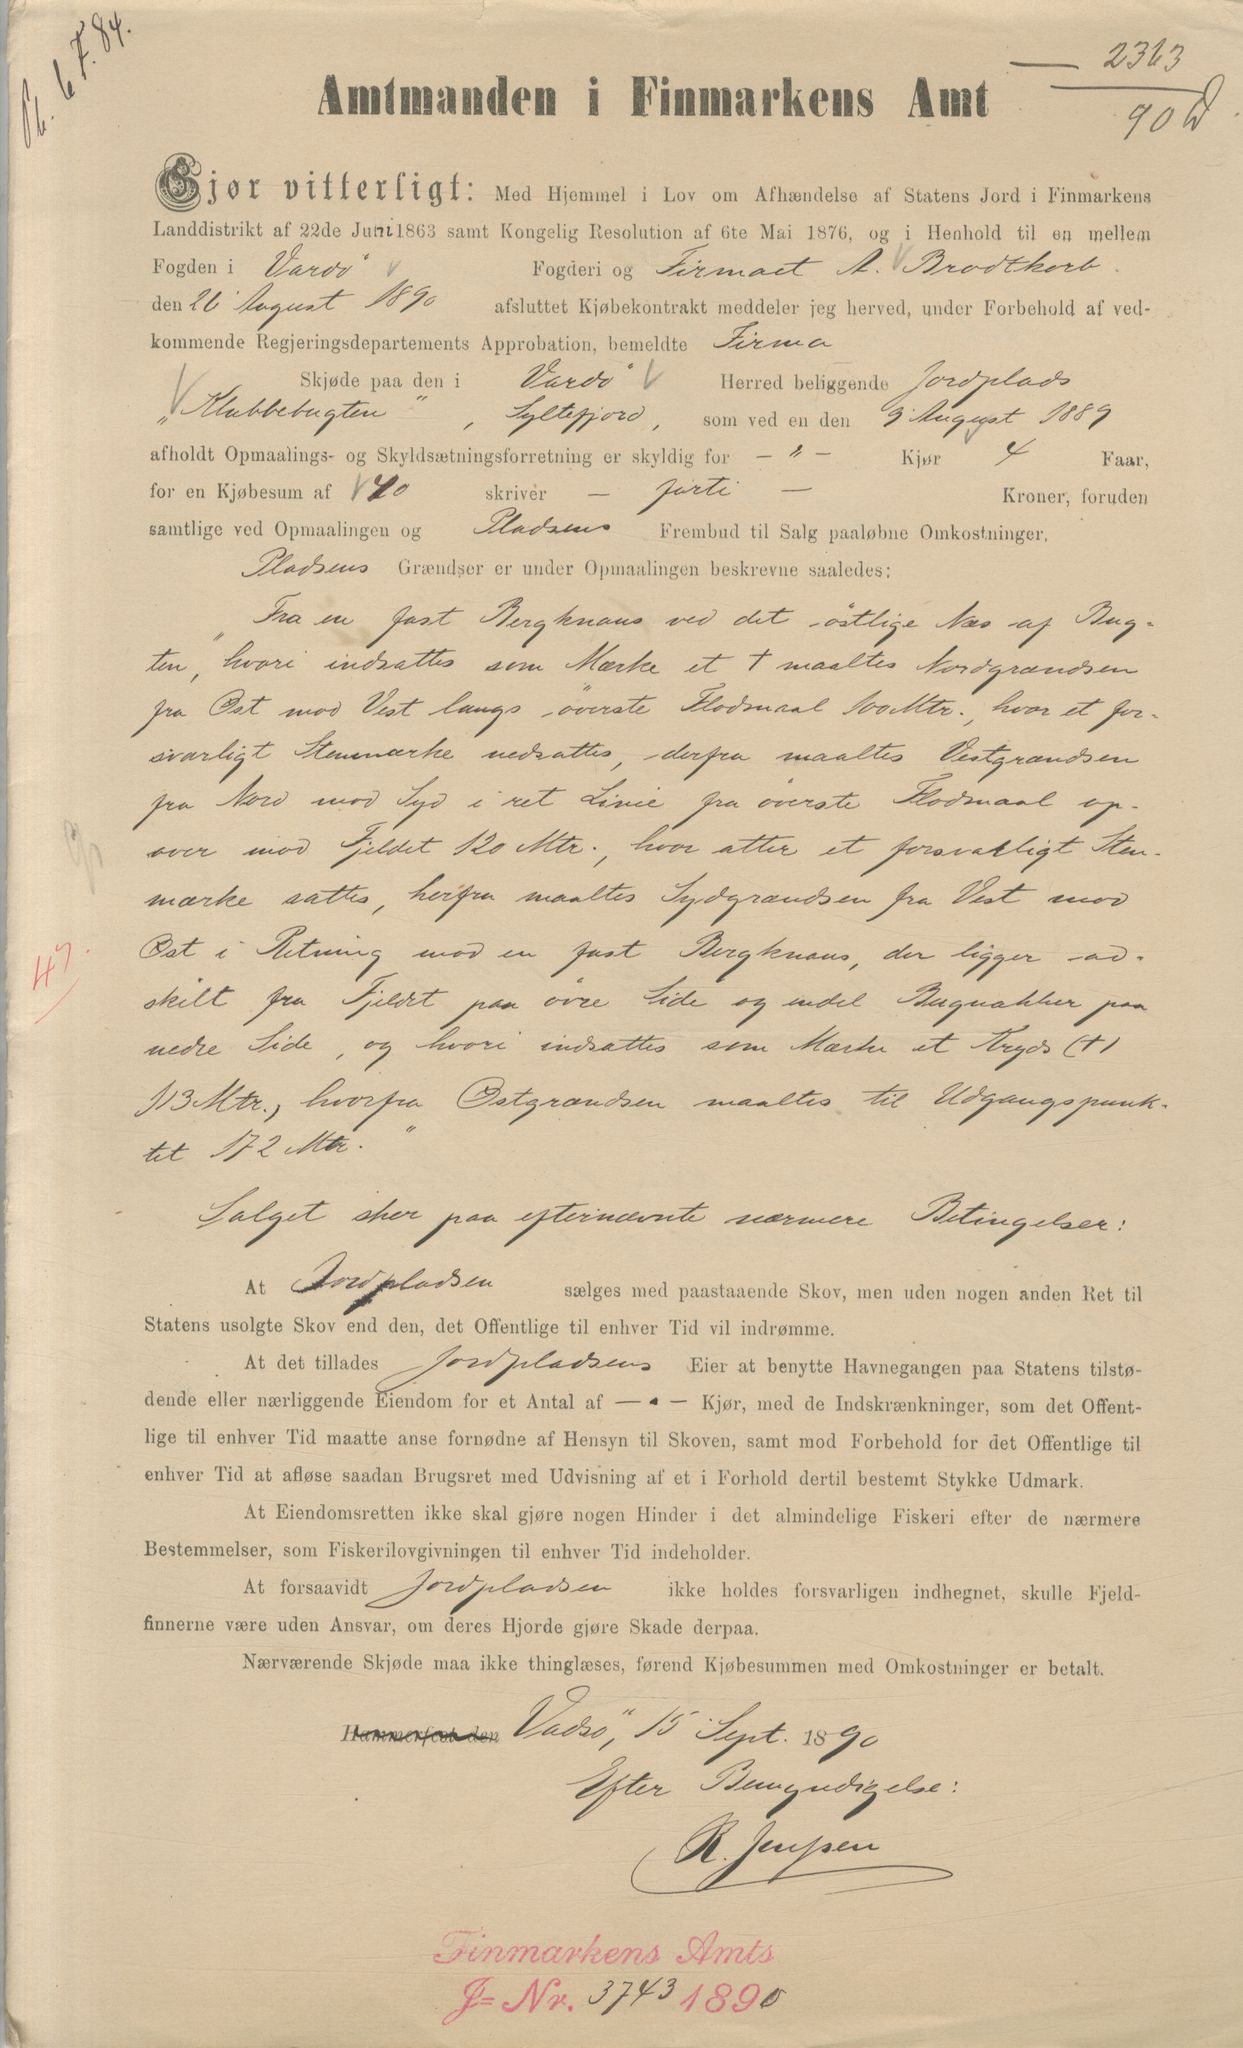 Pk. 6.7.84.
2363
90 D
Amtmanden i Finmarkens Amt
Gjør vitterligt: Med Hjemmel i Lov om Afhændelse af Statens Jord i Finmarkens
Landdistrikt af 22de Juni 1863 samt Kongelig Resolution af 6te Mai 1876, og i Henhold til en mellem
Fogden i Vardö Fogderi og Firmaet A. Brodtkorb
den 26 August 1890 afsluttet Kjøbekontrakt meddeler jeg herved, under Forbehold af ved-
kommende Regjeringsdepartements Approbation, bemeldte Firma
Skjøde paa den i Vardö Herred beliggende Jordplads
"Klubbebugten", Syltefjord, som ved en den 9 August 1889
afholdt Opmaalings- og Skyldsætningsforretning er skyldig for – " – Kjør 4 Faar,
for en Kjøbesum af 40 skriver – forti – Kroner, foruden
samtlige ved Opmaalingen og Pladsens Frembud til Salg paaløbne Omkostninger.
Pladsens Grændser er under Opmaalingen beskrevne saaledes:
"Fra en fast Bergknaus ved det östlige Næs af Bug-
ten, hvori indsattes som Mærke et + maaltes Nordgrændsen
fra Øst mod Vest langs överste Flodmaal 100 Mtr., hvor et for-
svarligt Stenmærke nedsattes, derfra maaltes Vestgrændsen
fra Nord mod Syd i ret Linie fra överste Flodmaal op-
over mod Fjeldet 120 Mtr., hvor atter et forsvarligt Sten-
mærke sattes, herfra maaltes Sydgrændsen fra Vest mod
Øst i Retning mod en fast Bergknaus, der ligger ad-
skilt fra Fjeldet paa övre Side og endel Bugnakker paa
nedre Side, og hvori indsattes som Mærke et Kryds (+)
113 Mtr., hvorfra Østgrændsen maaltes til Udgangspunk-
tet 172 Mtr."
47.
Salget sker paa efternævnte nærmere Betingelser:
At Jordpladsen sælges med paastaaende Skov, men uden nogen anden Ret til
Statens usolgte Skov end den, det Offentlige til enhver Tid vil indrømme.
At det tillades Jordpladsens Eier at benytte Havnegangen paa Statens tilstø-
dende eller nærliggende Eiendom for et Antal af — • — Kjør, med de Indskrænkninger, som det Offent-
lige til enhver Tid maatte anse fornødne af Hensyn til Skoven, samt mod Forbehold for det Offentlige til
enhver Tid at afløse saadan Brugsret med Udvisning af et i Forhold dertil bestemt Stykke Udmark.
At Eiendomsretten ikke skal gjøre nogen Hinder i det almindelige Fiskeri efter de nærmere
Bestemmelser, som Fiskerilovgivningen til enhver Tid indeholder.
At forsaavidt Jordpladsen ikke holdes forsvarligen indhegnet, skulle Fjeld-
finnerne være uden Ansvar, om deres Hjorde gjøre Skade derpaa.
Nærværende Skjøde maa ikke thinglæses, førend Kjøbesummen med Omkostninger er betalt.
Hammerfest den Vadsö, 15 Sept. 1890
Efter Bemyndigelse:
R. Jenssen
Finmarkens Amts
J= Nr. 3743 1890